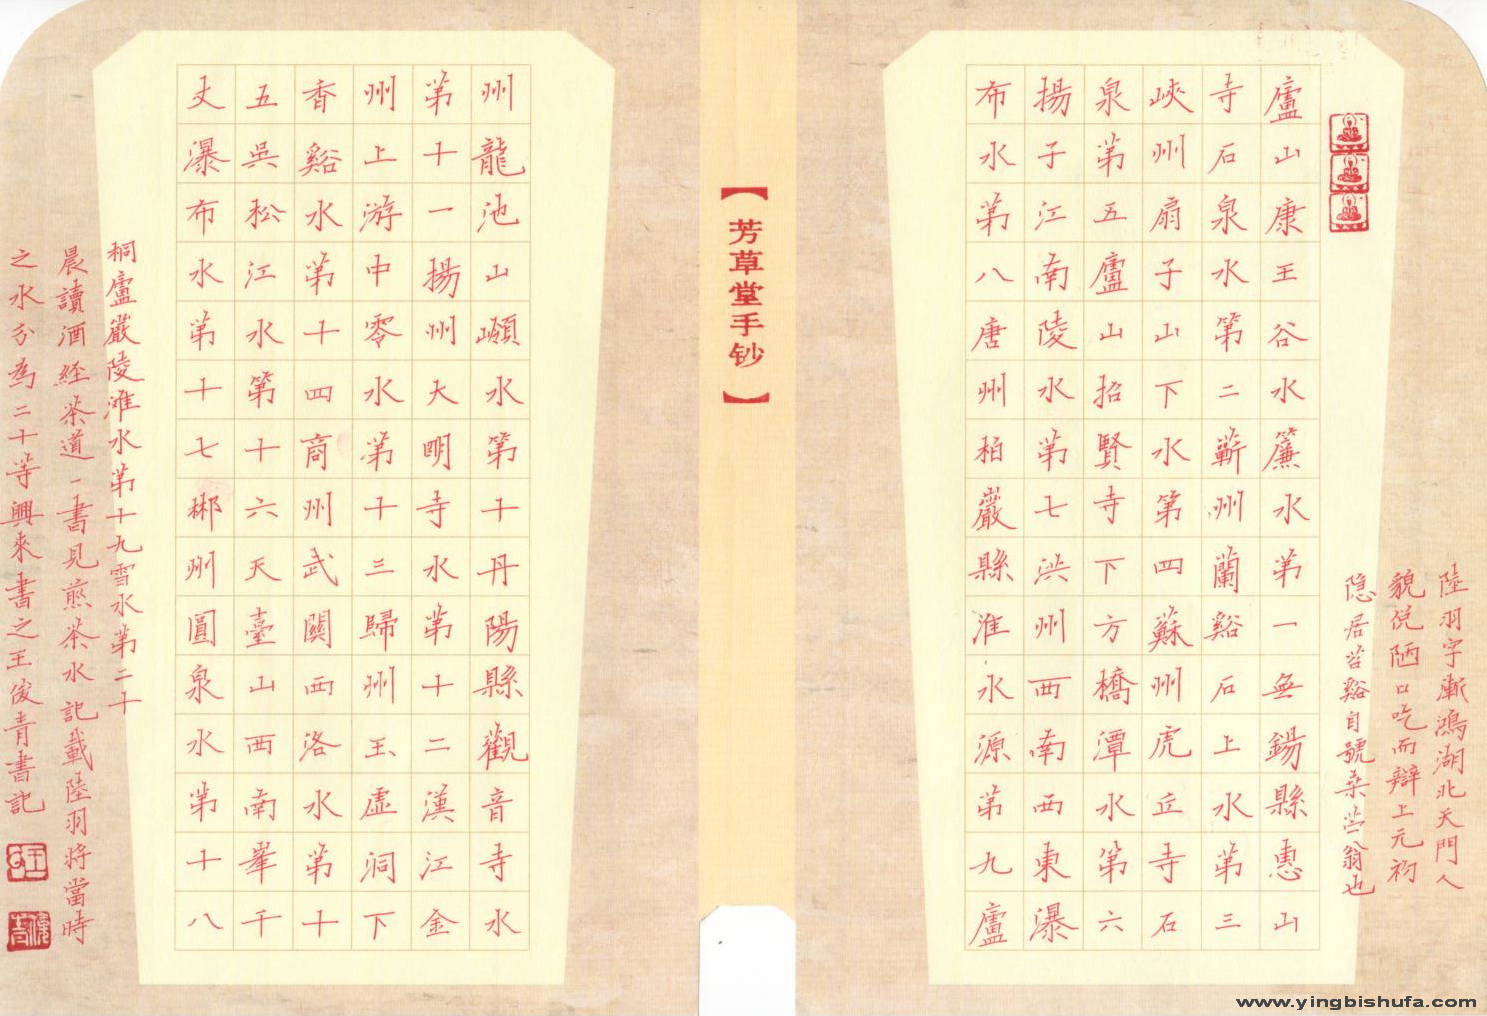 陸羽字漸鴻湖北天門人
貌侻陋口吃而辯上元初
隠居苕谿自號桑苎翁也
廬山康王谷水簾水第一無錫縣惠山
寺石泉水第二蘄州蘭谿石上水第三
峽州扇子山下水第四蘇州虎丘寺石
泉第五廬山招賢寺下方橋潭水第六
揚子江南陵水第七洪州西南西東瀑
布水第八唐州柏巖縣淮水源第九廬
【芳草堂手钞】
州龍池山水第十丹陽縣觀音寺水
第十一揚州大明寺水第十二漢江金
州上游中零水第十三歸州玉虛洞下
香谿水第十四商州武關西洛水第十
五吳松江水第十六天臺山西南峯千
丈瀑布水第十七郴州圓泉水第十八
桐廬嚴陵滩水第十九雪水第二十
晨讀酒經茶道一書見煎茶水記載陸羽將當時
之水分為二十等興來書之王俊青書記
www.yingbishufa.com